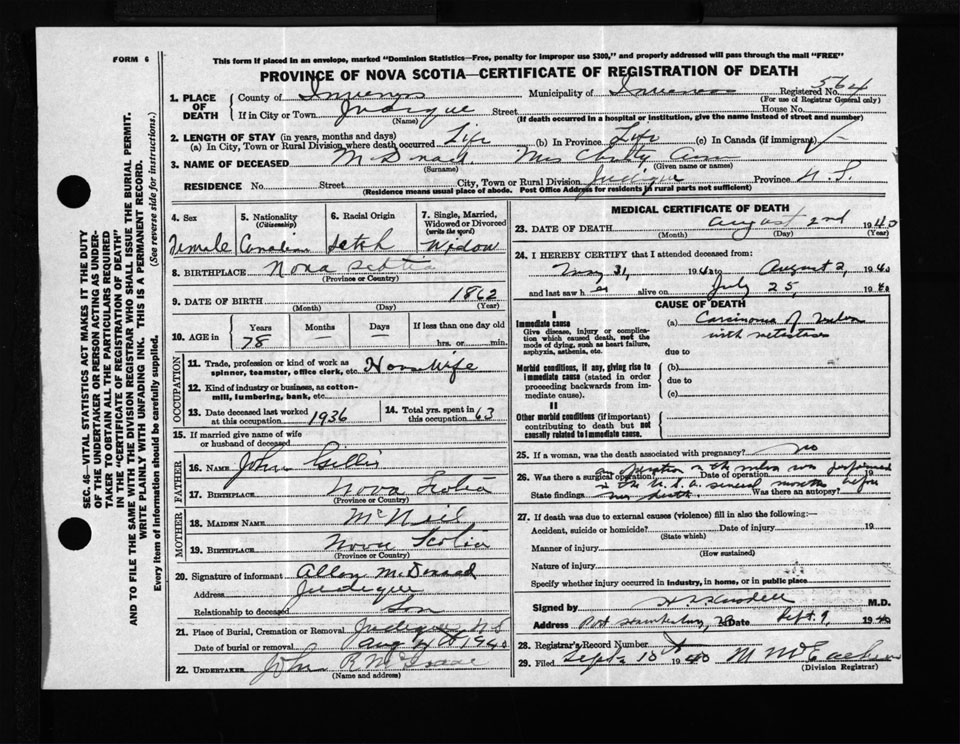 FORM 6
This form if placed in an envelope, marked "Dominion Statistics—Free, penalty for improper use $300," and properly addressed will pass through the mail "FREE"
PROVINCE OF NOVA SCOTIA—CERTIFICATE OF REGISTRATION OF DEATH
1. PLACE OF DEATH
County of Inverness Municipality of Inverness Registered No. 564
(For use of Registrar General only)
If in City or Town Judique Street House No.
(Name) (If death occurred in a hospital or institution, give the name instead of street and number)
2. LENGTH OF STAY (in years, months and days)
(a) In City, Town or Rural Division where death occurred Life (b) In Province Life (c) In Canada (if immigrant)
3. NAME OF DECEASED Mrs Ann
(Surname) (Given name or names)
RESIDENCE No. Street City, Town or Rural Division Judique Province N.S.
(Residence means usual place of abode. Post Office Address for residents in rural parts not sufficient)
4. Sex
Female
5. Nationality
(Citizenship)
Canadian
6. Racial Origin
7. Single, Married, Widowed or Divorced
(write the word)
Widow
8. BIRTHPLACE Nova Scotia
(Province or Country)
9. DATE OF BIRTH 1862
(Month) (Day) (Year)
10. AGE in
Years Months Days If less than one day old
78 — — hrs. or min.
OCCUPATION
11. Trade, profession or kind of work as spinner, teamster, office clerk, etc. House Wife
12. Kind of industry or business, as cotton-mill, lumbering, bank, etc.
13. Date deceased last worked at this occupation 1936
14. Total yrs. spent in this occupation 63
15. If married give name of wife or husband of deceased
FATHER
16. NAME John Gillis
17. BIRTHPLACE Nova Scotia
(Province or Country)
MOTHER
18. MAIDEN NAME McNeil
19. BIRTHPLACE Nova Scotia
(Province or Country)
20. Signature of informant Allan McDonald
Address Judique
Relationship to deceased Son
21. Place of Burial, Cremation or Removal Judique N S
Date of burial or removal Aug 1940
22. UNDERTAKER John R
(Name and address)
MEDICAL CERTIFICATE OF DEATH
23. DATE OF DEATH August 2nd 1940
(Month) (Day) (Year)
24. I HEREBY CERTIFY that I attended deceased from:
May 31, 1940 to August 2, 1940
and last saw h er alive on July 25, 1940
CAUSE OF DEATH
I
Immediate cause
Give disease, injury or complication which caused death, not the mode of dying, such as heart failure, asphyxia, asthenia, etc.
(a) Carcinoma of
with metastases
due to
Morbid conditions, if any, giving rise to immediate cause (stated in order proceeding backwards from immediate cause).
(b)
due to
(c)
II
Other morbid conditions (if important) contributing to death but not causally related to immediate cause.
25. If a woman, was the death associated with pregnancy? no
an operation on the was performed
26. Was there a surgical operation? Date of operation 19
in the U.S.A. several months before
State findings her death Was there an autopsy?
27. If death was due to external causes (violence) fill in also the following:—
Accident, suicide or homicide? Date of injury 19
(State which)
Manner of injury
(How sustained)
Nature of injury
Specify whether injury occurred in industry, in home, or in public place
Signed by M.D.
Address Port Hawkesbury, NS Date Sept. 9, 1940
28. Registrar's Record Number
29. Filed Sept 10 1940 M McEachern
(Division Registrar)
SEC. 46—VITAL STATISTICS ACT MAKES IT THE DUTY OF THE UNDERTAKER OR PERSON ACTING AS UNDERTAKER TO OBTAIN ALL THE PARTICULARS REQUIRED IN THE "CERTIFICATE OF REGISTRATION OF DEATH" AND TO FILE THE SAME WITH THE DIVISION REGISTRAR WHO SHALL ISSUE THE BURIAL PERMIT.
WRITE PLAINLY WITH UNFADING INK. THIS IS A PERMANENT RECORD.
Every item of information should be carefully supplied. (See reverse side for instructions.)